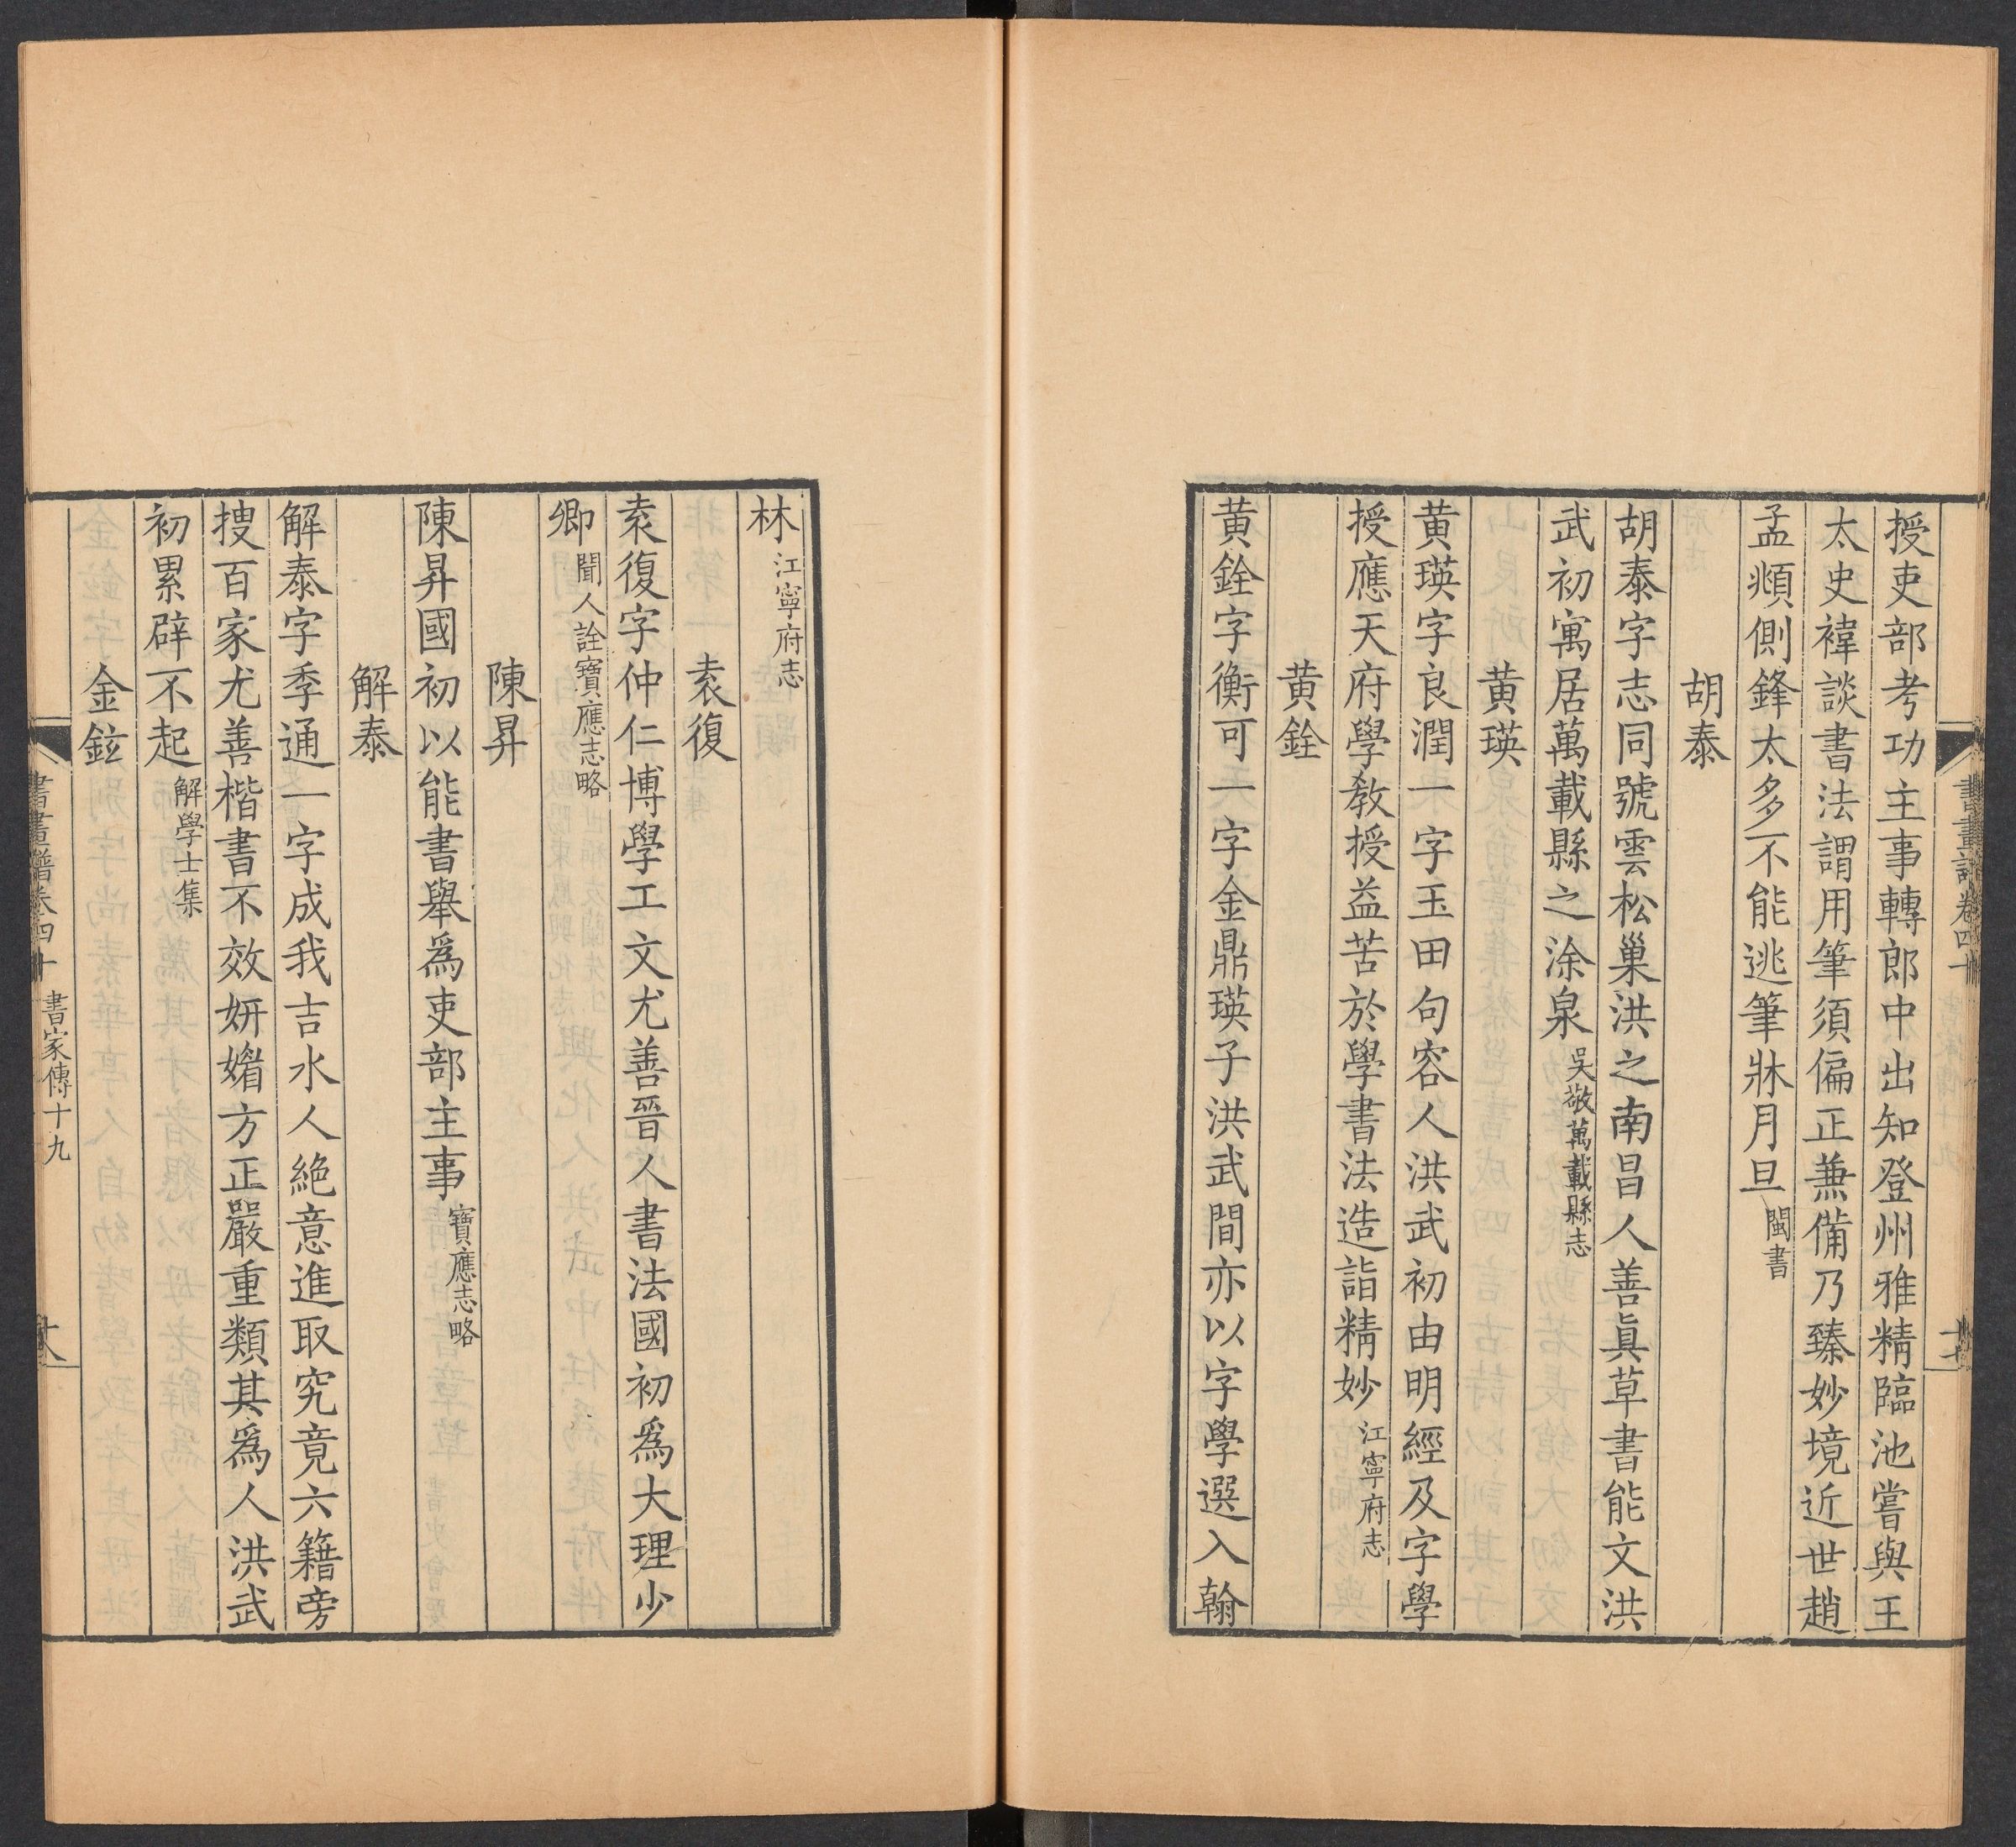 授吏部考功主事轉郎中出知登州雅精臨池嘗與王
太史褘談書法謂用筆須偏正兼備乃臻妙境近世趙
孟頫側鋒太多不能逃筆牀月旦閩書
胡泰
胡泰字志同號雲松巢洪之南昌人善眞草書能文洪
武初寓居萬載縣之涂泉吳敬萬載縣志
黃瑛
黃瑛字良潤一字玉田句容人洪武初由明經及字學
授應天府學敎授益苦於學書法造詣精妙江寧府志
黃銓
黃銓字衡可一字金鼎瑛子洪武間亦以字學選入翰
林江寧府志
袁復
袁復字仲仁博學工文尤善晉人書法國初爲大理少
卿聞人詮寶應志略
陳昇
陳昇國初以能書舉爲吏部主事寶應志略
解泰
解泰字季通一字成我吉水人絶意進取究竟六籍旁
捜百家尤善楷書不效妍媚方正嚴重類其爲人洪武
初累辟不起解學士集
金鉉
書畫譜卷四十 書家傳十九